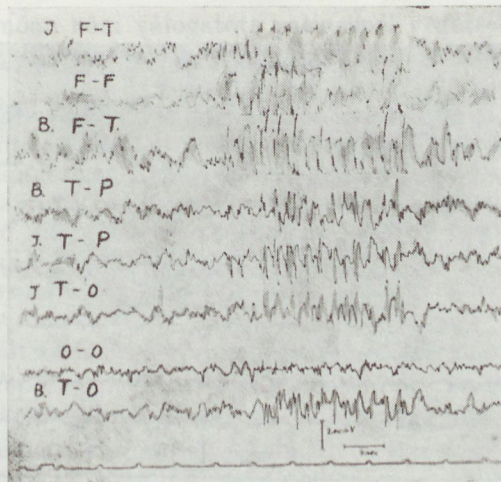 J. F-T
F-F
B. F-T.
B. T-P
J. T-P
J T-O
O-O
B. T-O